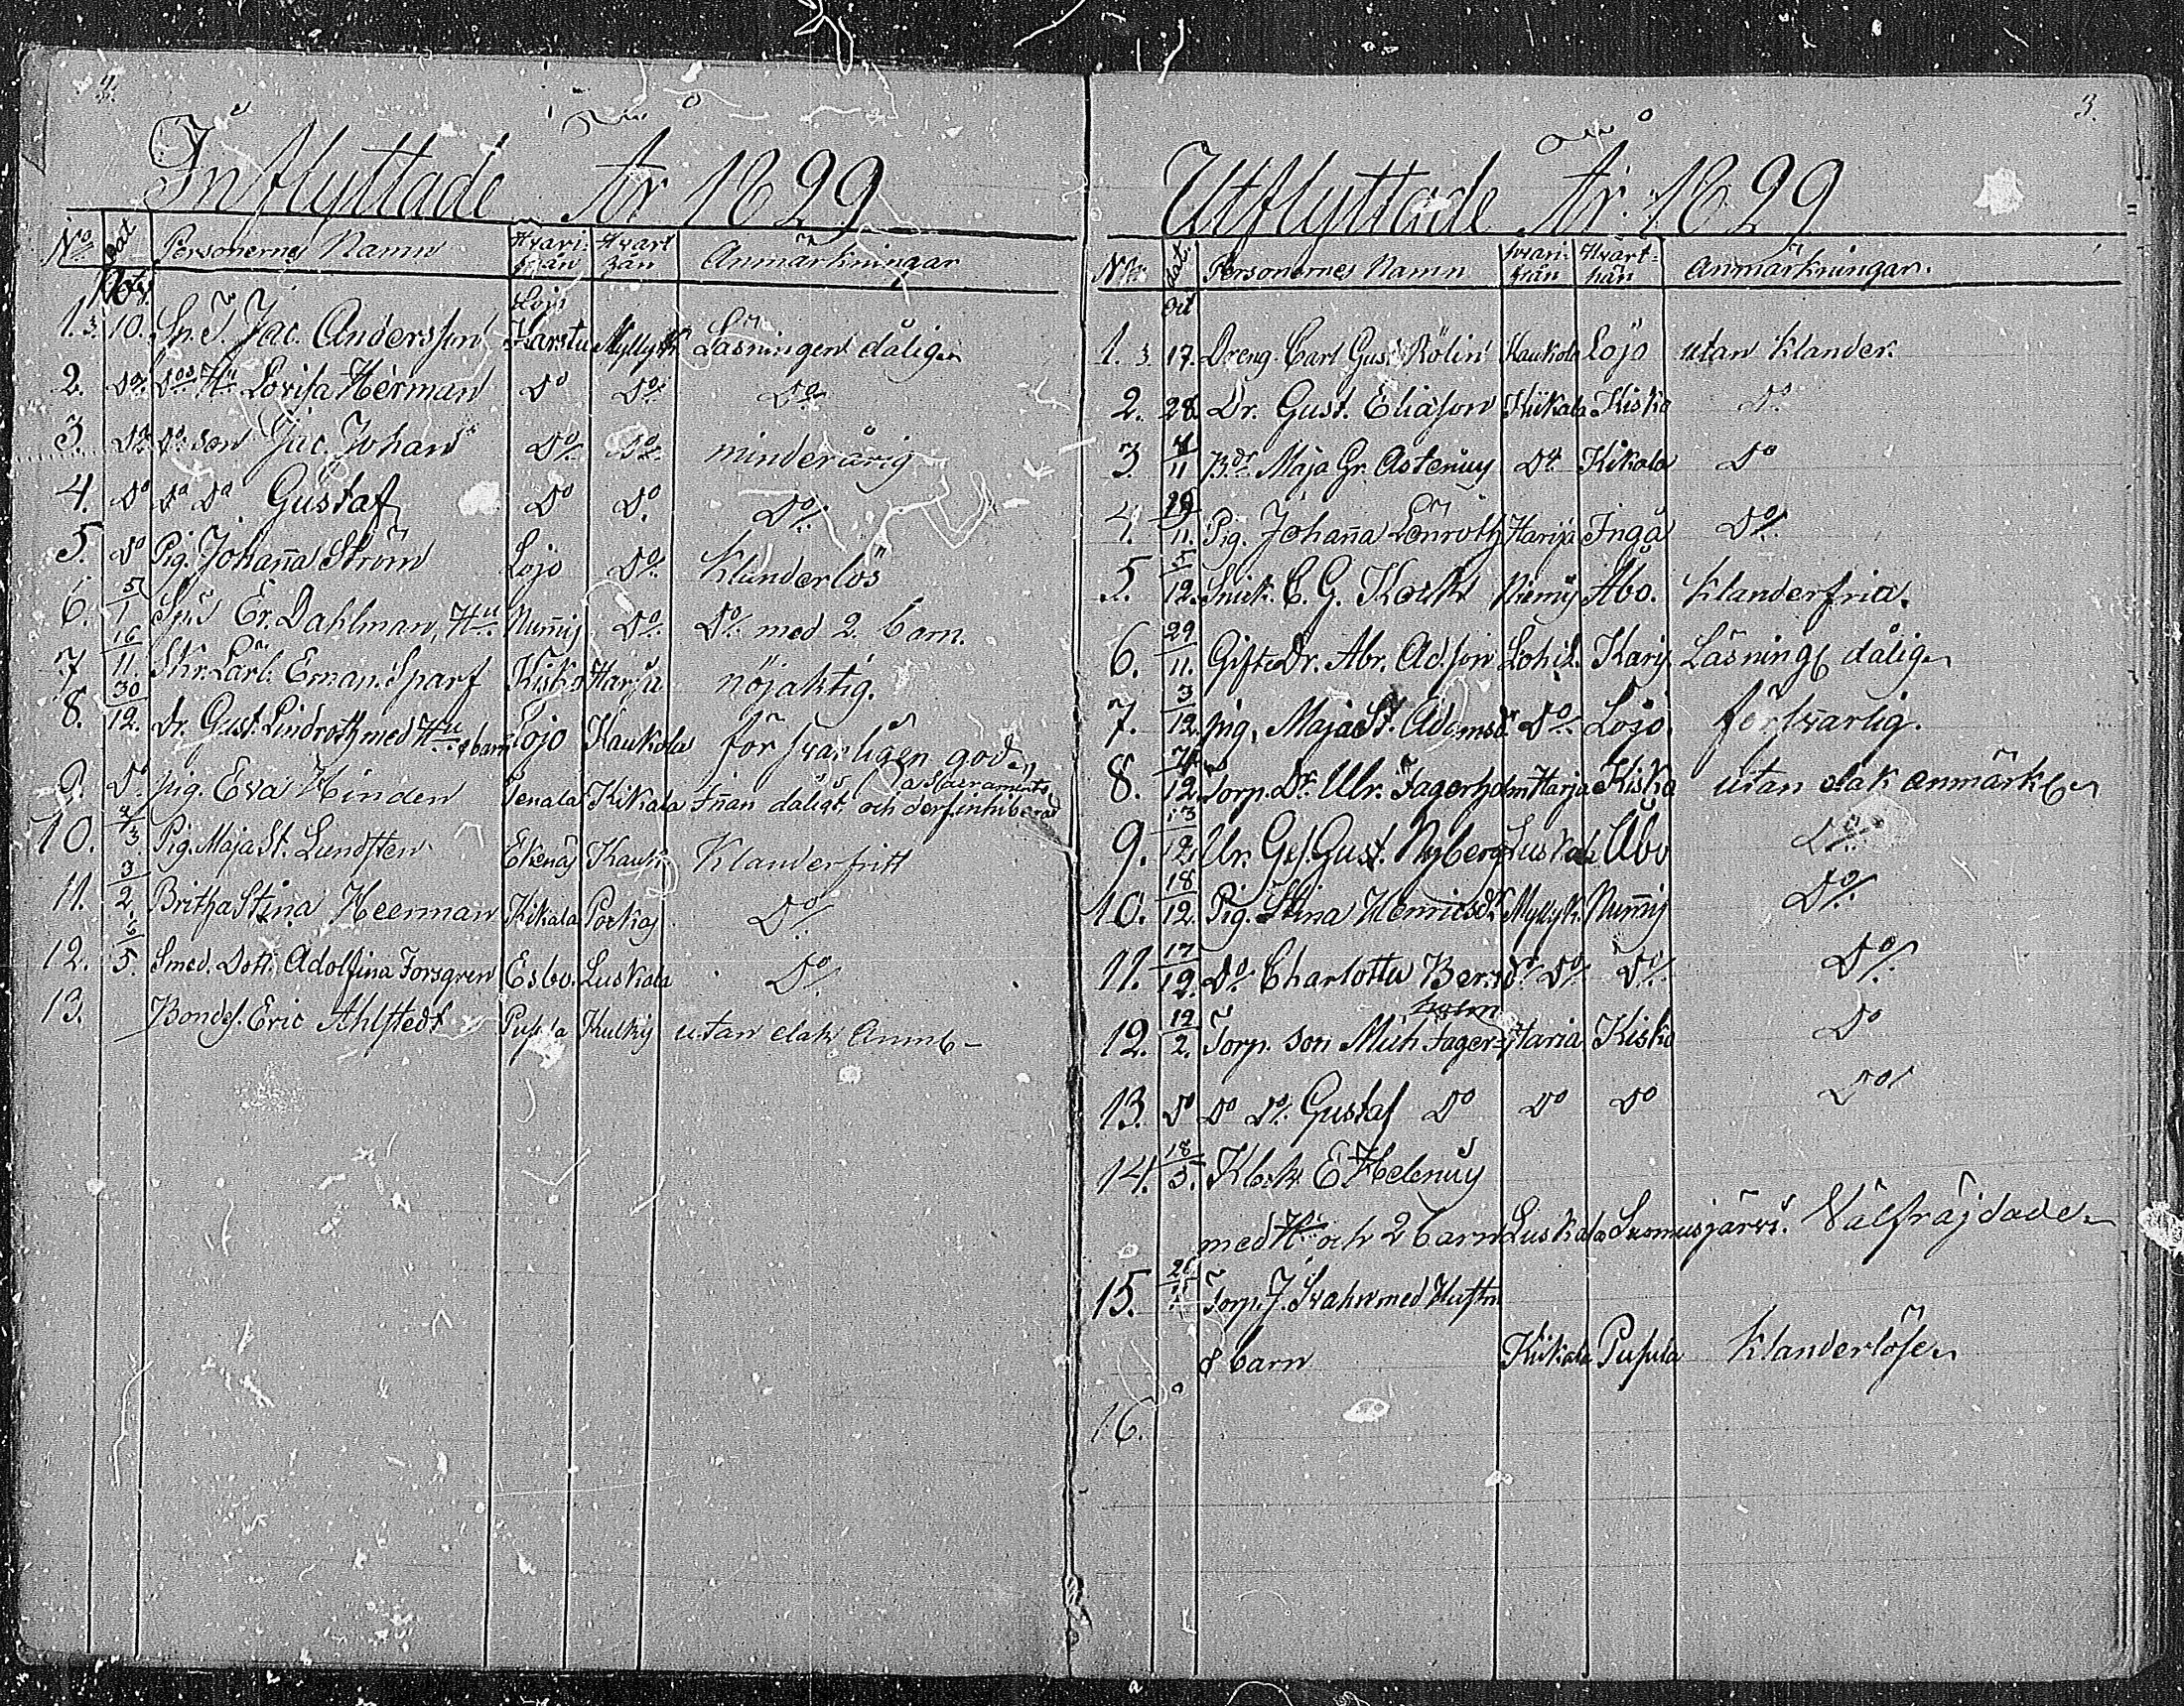 2.
Inflyttade År 1829
No. Dat. Personernes Namn Hvarifrån Hvart hän Anmärkningar
Lojo
1. 10. Jac. Andersson Karstu Myllyk Läsningen dålig
2. Do Do Hu Lovisa Herman Do Do Do
3. Do Do son Jac. Johan Do Do minderårig
4. Do Do Do Gustaf Do Do Do
5. Do Pig. Johanna Ström Lojo Do Klanderlös
6. 5/1 Er. Dahlman, Hu Numij Do Do med 2 barn.
7 16/11. Carl. Eman. Sparf Kisko Harju nöjaktig.
8. 30/12. Dr. Gust. Lindroth med Hu & barn Lojo Kaukola försvarligen goda
9. Do pig. Eva Hinden Tenala Kikala Innan dåligt och
10. 2/3. Pig. Maja St. Lundsten Ekenäs Kauk Klanderfritt
11. 3/2 Britha Stina Heerman Kikala Porkaj Do
12. 6/5. Smed. Dott. Adolfina Forsgren Esbo. Luskala Do
13. Bondes. Eric Ahlstedt Pusula Kulkis utan elak Anmk
3.
Utflyttade År 1829
No. Dat. Personernes Namn hvarifrån Hvart hän Anmärkningar.
1. 17. Dreng. Carl Gust. Rölin Kaukola Lojo utan klander.
2. 28. Dr. Gust. Eliasson Kiikala Kisko Do
3. /11 Maja Gr. Asterius Do Kikala Do
4. /11. Pig. Johanna Lönroth Harija Inga Do
5. 5/12. Snick. C. G. Åbo. Klanderfria.
6. 29/11. Gifte Dr. Abr. Ad.son Karis Läsning dålig
7. 3/12. pig. Maja St. Adamsdr Do Lojo. försvarlig.
8. /12. Torp. Dr. Ulr. Fagerholm Harja Kisko utan elak anmärk
9. 13/12. Ges. Gust. Nyberg Luskala Åbo Do
10. 18/12. Pig. Stina Henricsdr Myllyk. Numij Do
11. 17/12. Do Charlotta Do Do Do
holm
12. 12/2. Torp. son Mich Fager- Haria Kisko Do
13. Do Do Do Gustaf Do Do Do Do
14. 18/3. Klock E Helenius
med Hu och 2 barn Luskala Suomusjärvi. Välfräjdade
15. Torp. J. Svahn med Hustru
& barn Kiikala Pusula Klanderlöse
16.